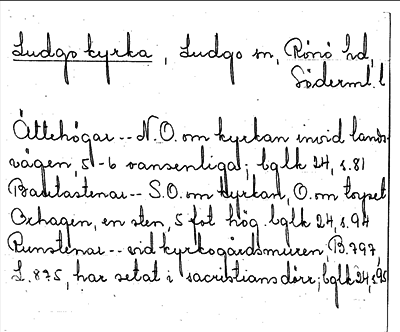 Ludgo kyrka, Ludgo sn, Rönö hd,
Söderml. l
Ättehögar -- N.O. om kyrkan invid lands-
vägen, 5-6 vansenliga; bglk 24, s. 81
Bautastenar -- S.O. om kyrkan, O. om torpet
Oxhagen, en sten, 5 fot hög. bglk 24, s. 94
Runstenar -- vid kyrkogårdsmuren, B. 797,
L. 875, har setat i sacristians dörr; bglk 24, s. 95